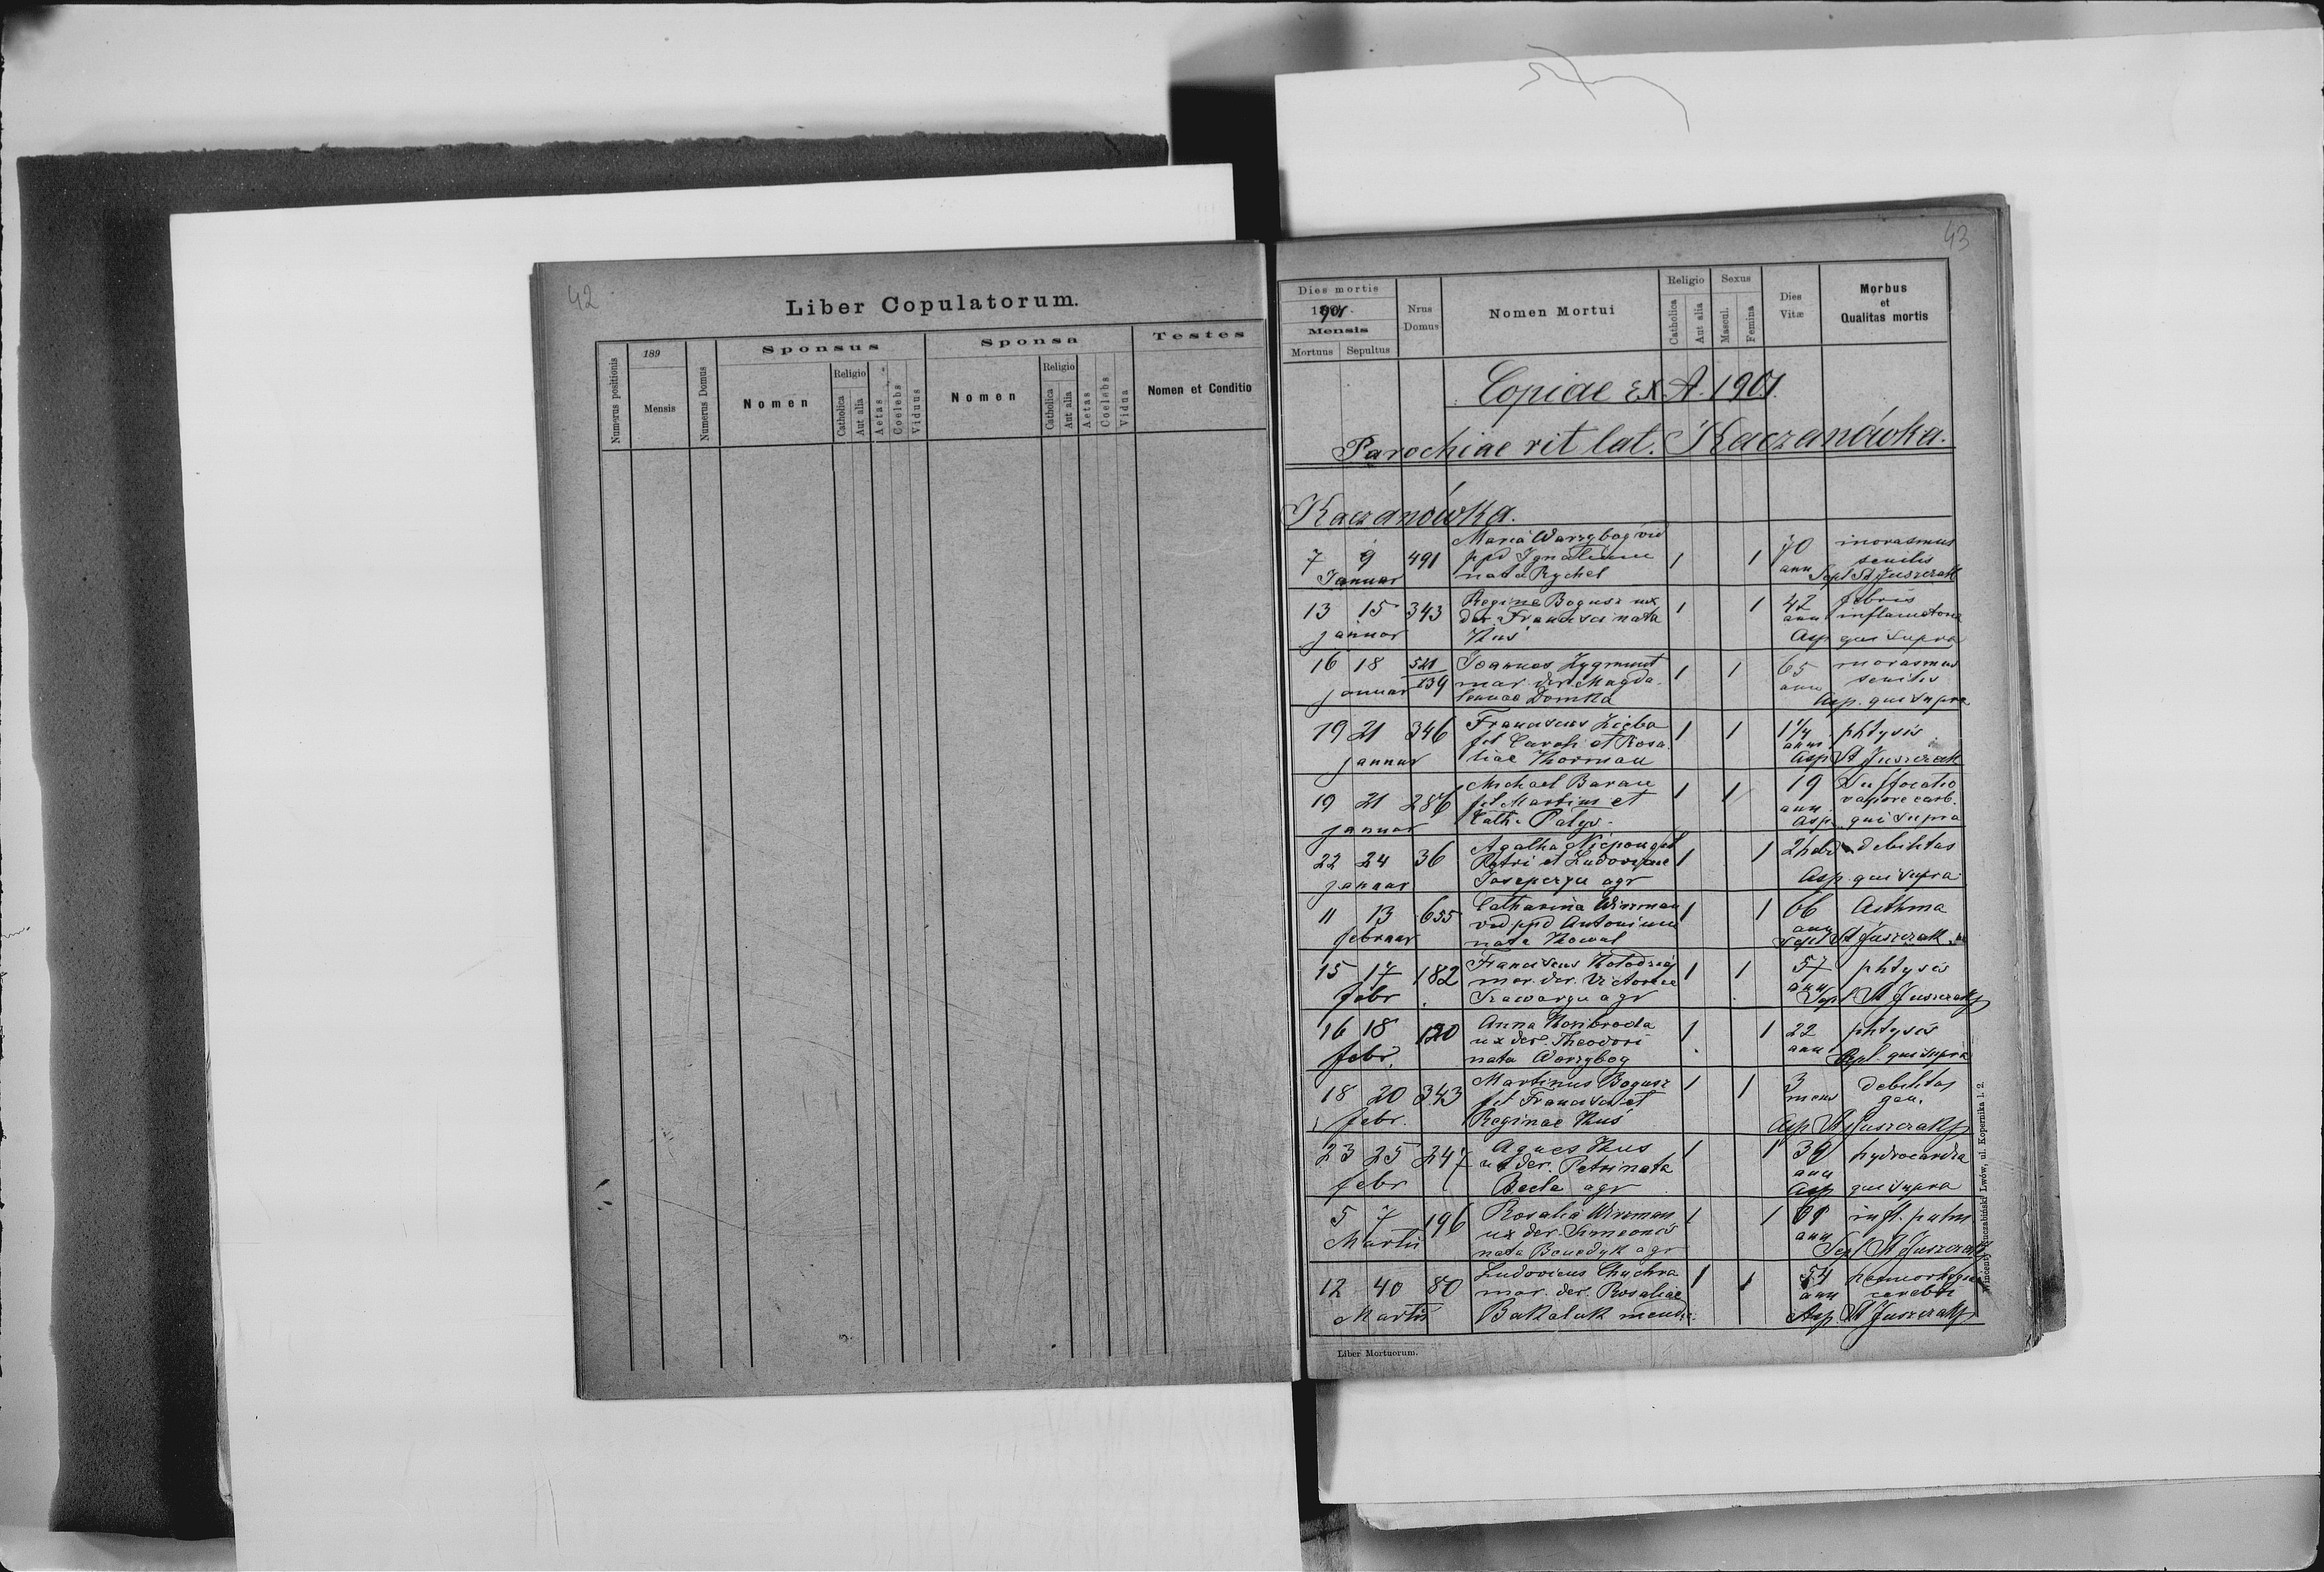 42
Liber Copulatorum.
Numerus positionis
189
Mensis
Numerus Domus
Sponsus
Nomen
Religio
Catholica
Aut alia
Aetas
Coelebs
Viduus
Sponsa
Nomen
Religio
Catholica
Aut alia
Aetas
Coelebs
Vidua
Testes
Nomen et Conditio
43
Dies mortis
1901
Mensis
Mortuus Sepultus
Nrus
Domus
Nomen Mortui
Religio
Catholica
Aut alia
Sexus
Mascul.
Femina
Dies
Vitæ
Morbus
et
Qualitas mortis
Copiae ex A. 1901.
Parochiae rit lat. Kaczanówka.
Kaczanówka.
Maria Warzybog vid
7 9 491 ppd Ignatium 1 1 70
Januar nata Rychel ann senilis
Sepl St Juszczak
13 15 343 Regina Bogusz ux 1 1 42 febris
der. Francisci nata ann
januar Kuś Asp qui supra
16 18 521 Joannes Zygmunt 1 1 65
januar 139 mar. der. Magda ann senilis
lenae Domka Asp. qui supra
19 21 346 Franciscus Zięba 1 1 1 1/4 phtysis
fil Caroli et Rosa ann
januar liae Thorman Asp St Juszczak
19 21 286 Michael Baran 1 1 19 Suffocatio
fil Martini et ann vapore carb.
januar Cath. Patys Asp. qui supra
22 24 36 Agatha 1 1 2 hebd debilitas
Petri et Ludovicae
januar agr Asp. qui supra
11 13 655 Catharina Wiszman 1 1 66 Asthma
vid ppd Antonium ann
februar nata Kowal Sepl St Juszczak
15 17 182 Franciscus 1 1 57 phtysis
mar. der. Victoriae ann
febr agr Sepl St Juszczak
16 18 120 Anna Konibroda 1 1 22 phtysis
ux der. Theodori ann
febr. nata Warzybog qui supra
18 20 343 Martinus Bogusz 1 1 3 debilitas
fil Francisci et mens gen.
febr. Reginae Kuś Asp St Juszczak
23 25 247 Agnes Kus 1 1 39
ux der. Petri nata ann
febr agr Asp qui supra
5 7 196 Rosalia Wiszman 1 1 infl. pulm
ux der. Simeonis ann
Martii nata Benedyk agr Sepl St Juszczak
12 40 80 Ludovicus Chuchra 1 1 54
mar. der. Rosaliae ann cerebri
Martii Bakaluk Asp. St Juszczak
Liber Mortuorum.
Wincenty Kuczabiński Lwów, ul. Kopernika l. 2.